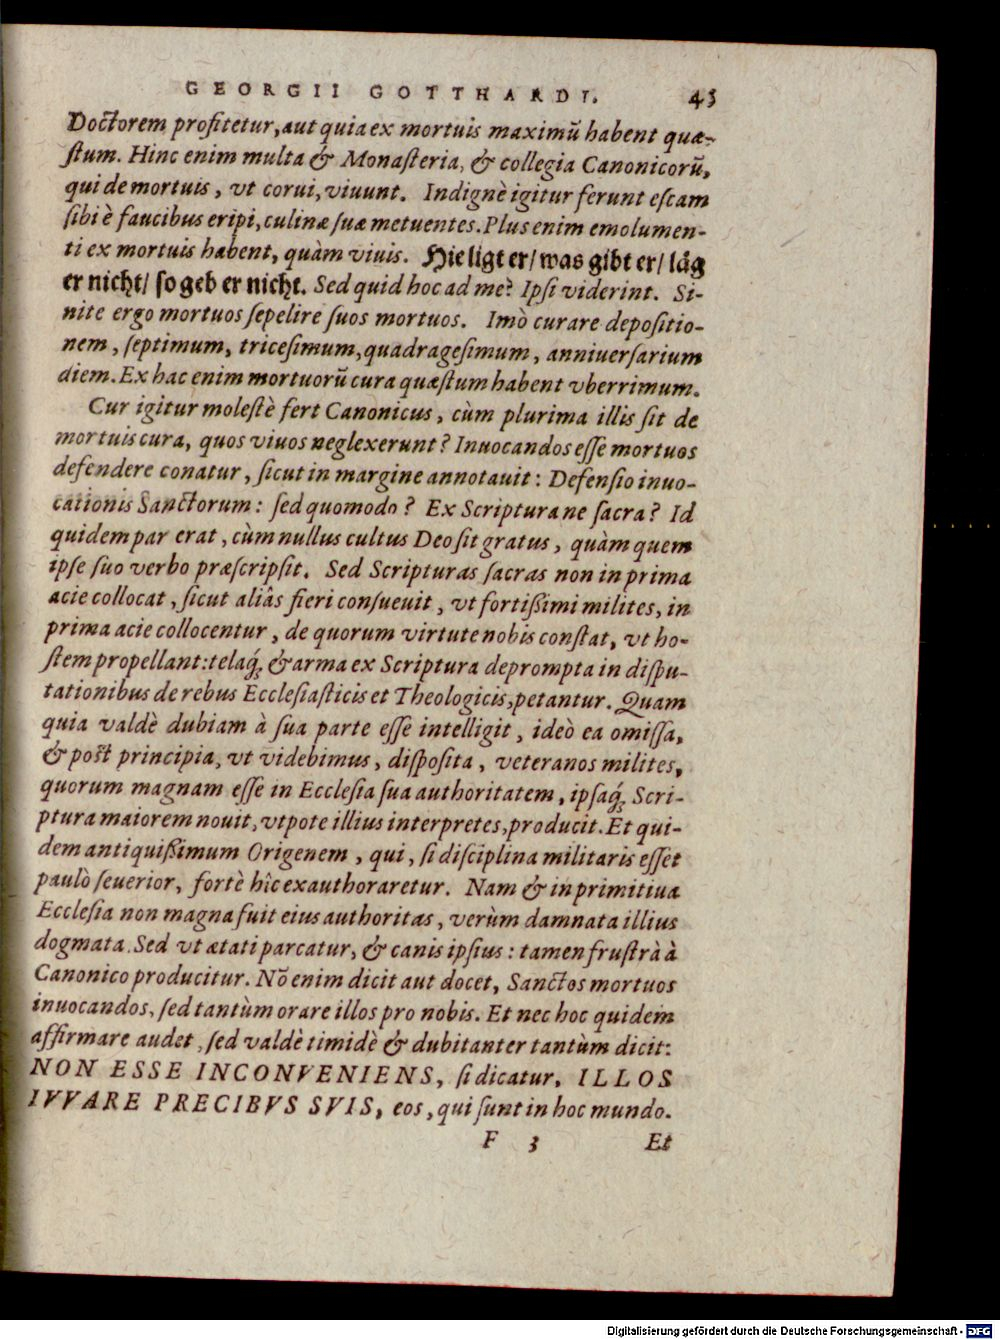 GEORGII GOTTHARDI. 43
Doctorem profitetur, aut quia ex mortuis maximū habent quæ-
ſtum. Hinc enim multa & Monaſteria, & collegia Canonicorū,
qui de mortuis, vt corui, viuunt. Indignè igitur ferunt eſcam
ſibi è faucibus eripi, culinæ ſuæ metuentes. Plus enim emolumen-
ti ex mortuis habent, quàm viuis. Hie ligt er/ was gibt er/ läg
er nicht/ ſo geb er nicht. Sed quid hoc ad me? Ipſi viderint. Si-
nite ergo mortuos ſepelire ſuos mortuos. Imò curare depoſitio-
nem, ſeptimum, triceſimum, quadrageſimum, anniuerſarium
diem. Ex hac enim mortuorū cura quæſtum habent vberrimum.
Cur igitur moleſtè fert Canonicus, cùm plurima illis ſit de
mortuis cura, quos viuos neglexerunt? Inuocandos eſſe mortuos
defendere conatur, ſicut in margine annotauit: Defenſio inuo-
cationis Sanctorum: ſed quomodo? Ex Scripturane ſacra? Id
quidem par erat, cùm nullus cultus Deo ſit gratus, quàm quem
ipſe ſuo verbo præſcripſit. Sed Scripturas ſacras non in prima
acie collocat, ſicut aliâs fieri conſueuit, vt fortißimi milites, in
prima acie collocentur, de quorum virtute nobis conſtat, vt ho-
ſtem propellant: telaq́; & arma ex Scriptura deprompta in diſpu-
tationibus de rebus Eccleſiaſticis et Theologicis, petantur. Quam
quia valdè dubiam à ſua parte eſſe intelligit, ideò ea omiſſa,
& poſt principia, vt videbimus, diſpoſita, veteranos milites,
quorum magnam eſſe in Eccleſia ſua authoritatem, ipſaq́; Scri-
ptura maiorem nouit, vtpote illius interpretes, producit. Et qui-
dem antiquißimum Origenem, qui, ſi diſciplina militaris eſſet
paulò ſeuerior, fortè hîc exauthoraretur. Nam & in primitiua
Eccleſia non magna fuit eius authoritas, verùm damnata illius
dogmata. Sed vt ætati parcatur, & canis ipſius: tamen fruſtrà à
Canonico producitur. Nō enim dicit aut docet, Sanctos mortuos
inuocandos, ſed tantùm orare illos pro nobis. Et nec hoc quidem
affirmare audet, ſed valdè timidè & dubitanter tantùm dicit:
NON ESSE INCONVENIENS, ſi dicatur, ILLOS
IVVARE PRECIBVS SVIS, eos, qui ſunt in hoc mundo.
F 3 Et
Digitalisierung gefördert durch die Deutsche Forschungsgemeinschaft - DFG